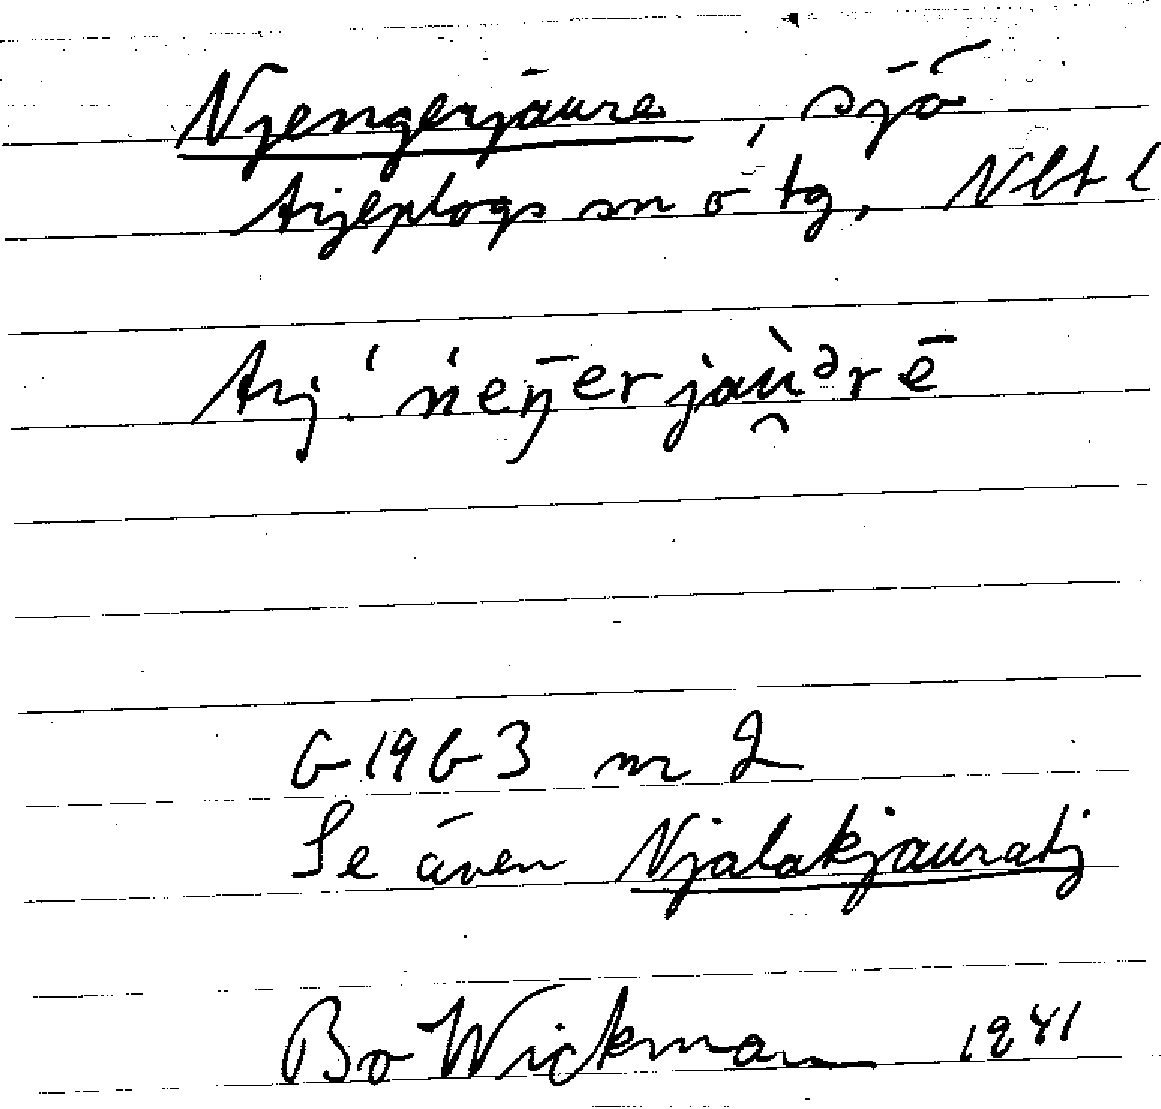 Njengerjaure, sjö
Arjeplogs sn o tg, Nlt l
Arj. ˈń̇eŋ̄er jaùᵊrē
G 1963 m 2
Se även Njalakjauratj
Bo Wickman 1941